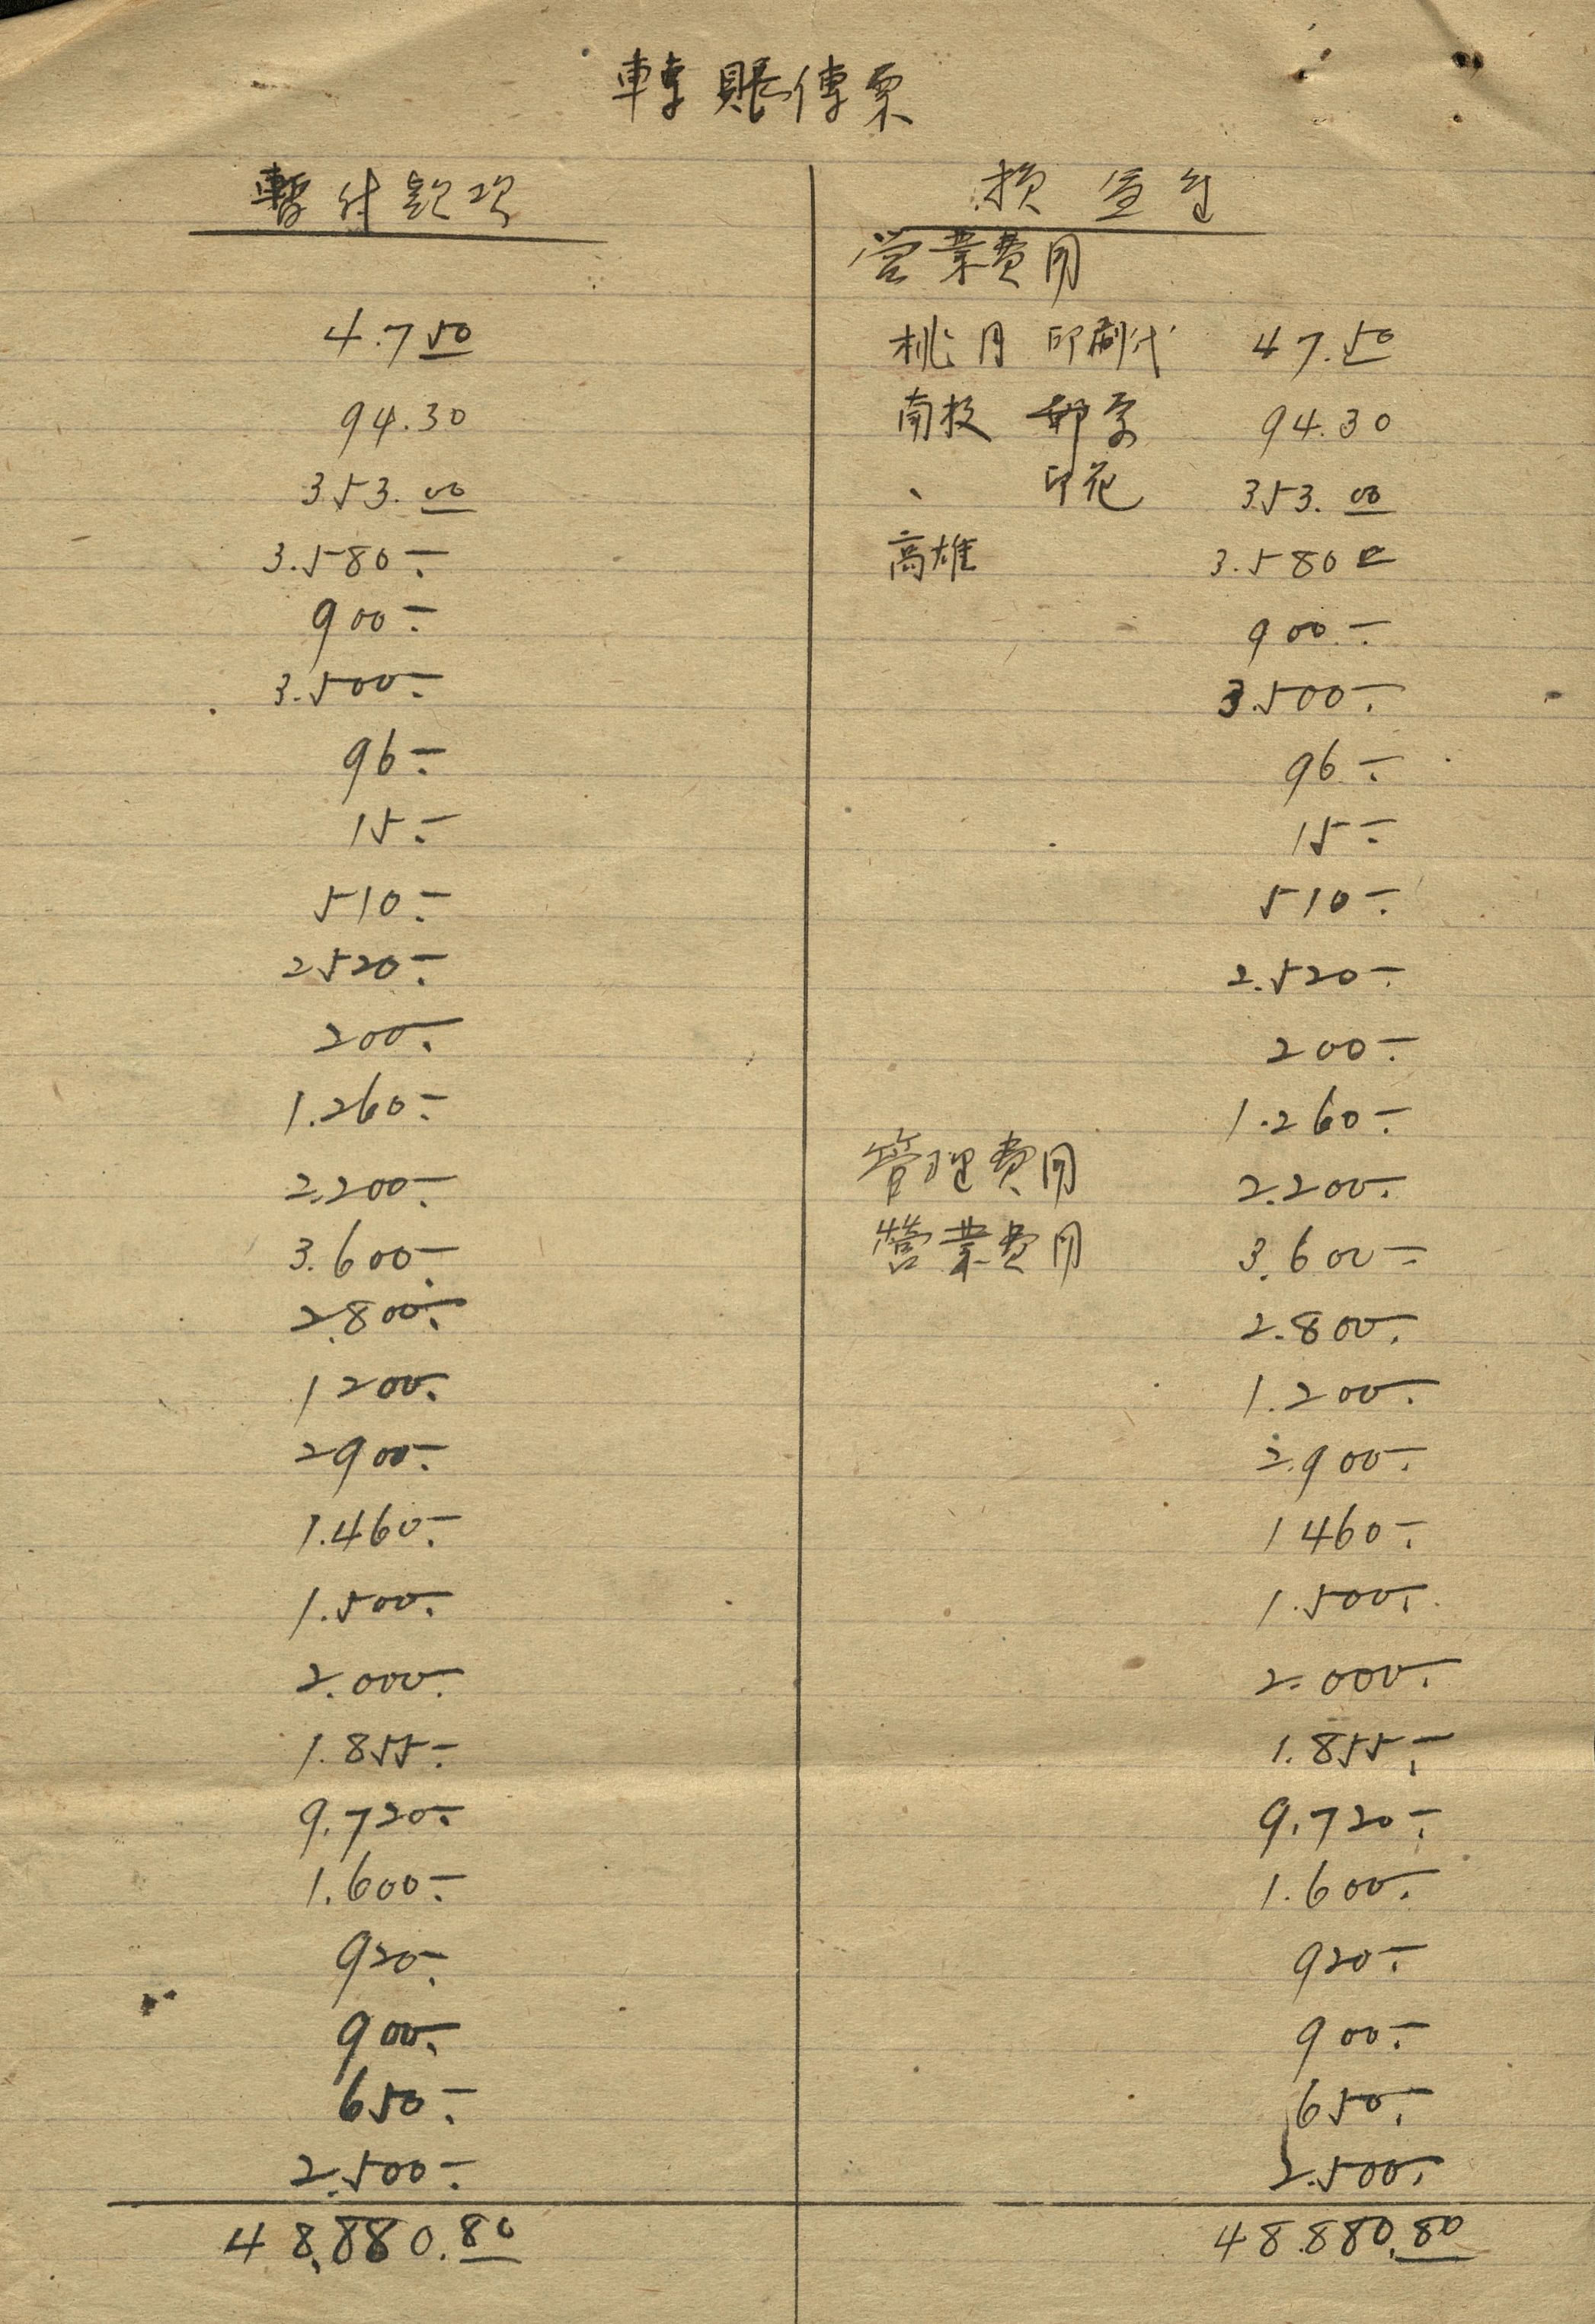 轉賬傳票
暫付款項
4.7 50
94.30
353. 00
3.580 -.
900 -.
3.500 -.
96 -.
15 -.
510 -.
2520 -.
200 -.
1.260 -.
2.200 -.
3.600 -.
2.800 -.
1200 -.
2900 -.
1.460 -.
1.500 -.
2.000 -.
1.855 -.
9.720 -.
1.600 -.
920 -.
900 -.
650 -.
2.500 -.
48.880.80
損益
營業費用
桃 印刷代 47.50
南投 郵票 94.30
、 印花 353. 00
高雄 3.580 -
900 -.
3.500 -.
96 -.
15 -.
510 -.
2.520 -.
200 -.
1.260 -.
管理費用 2.200 -.
營業費用 3.600 -.
2.800 -.
1.200 -.
2.900 -.
1460 -.
1.500 -.
2.000 -.
1.855 -.
9.720 -.
1.600 -.
920 -.
900 -.
650 -.
2.500 -.
48.880.80